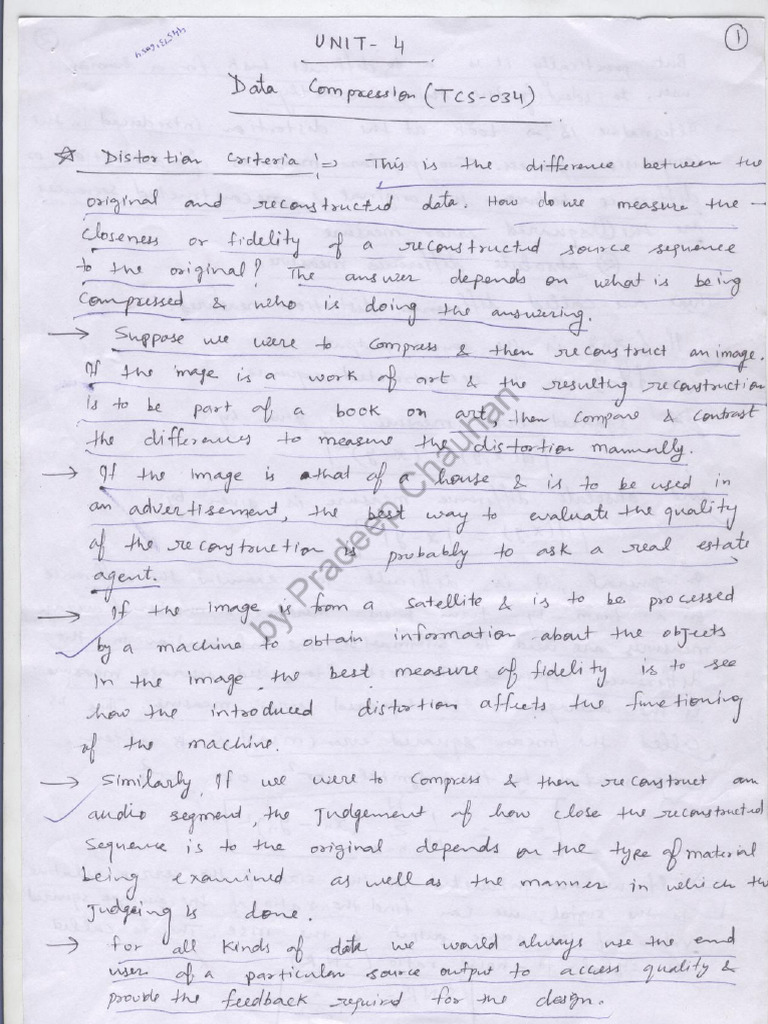 UNIT- 4
1
Data Compression (TCS-034)
☆ Distortion Criteria :⇒ This is the difference between the
original and reconstructed data. How do we measure the
closeness or fidelity of a reconstructed source sequence
to the original? The answer depends on what is being
Compressed & who is doing the answering.
→ Suppose we were to Compress & then reconstruct an image.
If the image is a work of art & the resulting reconstruction
is to be part of a book on art, then compare & contrast
the differences to measure the distortion manually.
→ If the image is that of a house & is to be used in
an advertisement, the best way to evaluate the quality
of the reconstruction is probably to ask a real estate
agent.
→ If the image is from a satellite & is to be processed
by a machine to obtain information about the objects
in the image, the best measure of fidelity is to see
how the introduced distortion affects the functioning
of the machine.
→ Similarly, If we were to Compress & then reconstruct an
audio segment, the Judgement of how close the reconstructed
Sequence is to the original depends on the type of material
being examined as well as the manner in which the
Judgeing is done.
→ for all kinds of data we would always use the end
user of a particular source output to access quality &
provide the feedback required for the design.
by Pradeep Chauhan